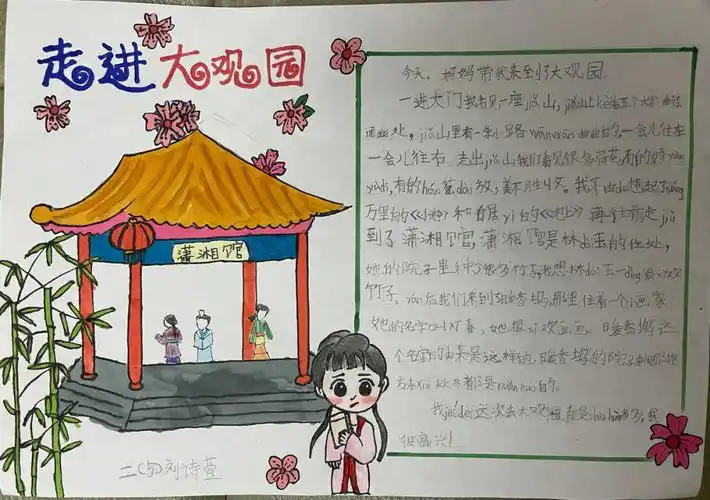 走进大观园
潇湘馆
今天，妈妈带我来到了大观园。
一进大门我看见一座jiǎ山，jiǎ山上kè着五个大字曲径
通幽处，jiǎ山里有一条小路wānwān曲曲的一会儿往左
一会儿往右。走出jiǎ山我们看见很多荷花，有的
有的hán苞dài放，美不胜收。我不由de想起了yáng
万里的《小池》和白居yì的《池上》再往前走jiù
到了潇湘馆，潇湘馆是林dài玉的住处，
她的院子里种了很多竹子，我想林dài玉一dìng很xǐ欢
竹子。rán后我们来到了暖香坞，那里住着一个小画家
她的名字叫xī春，她很xǐ欢画画。暖香坞这
个名字的由来是这样的，暖香坞的院子
春xià秋冬都是nuǎn nuǎn的。
我jué de这次去大观园
很高兴！
二(5)刘诗萱